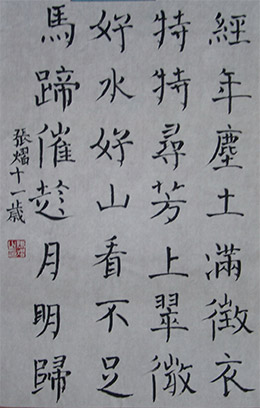 經年塵土滿徵衣
特特尋芳上翠微
好水好山看不足
馬蹄催趁月明歸
張熠十一歲